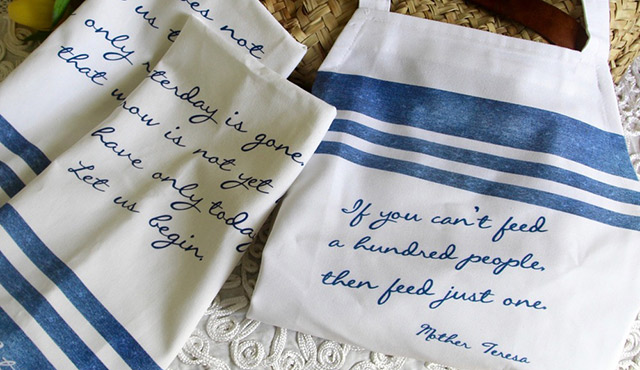 not
us
only
that
is gone.
is not yet
have only today
Let us begin.
If you can't feed
a hundred people,
then feed just one.
Mother Teresa